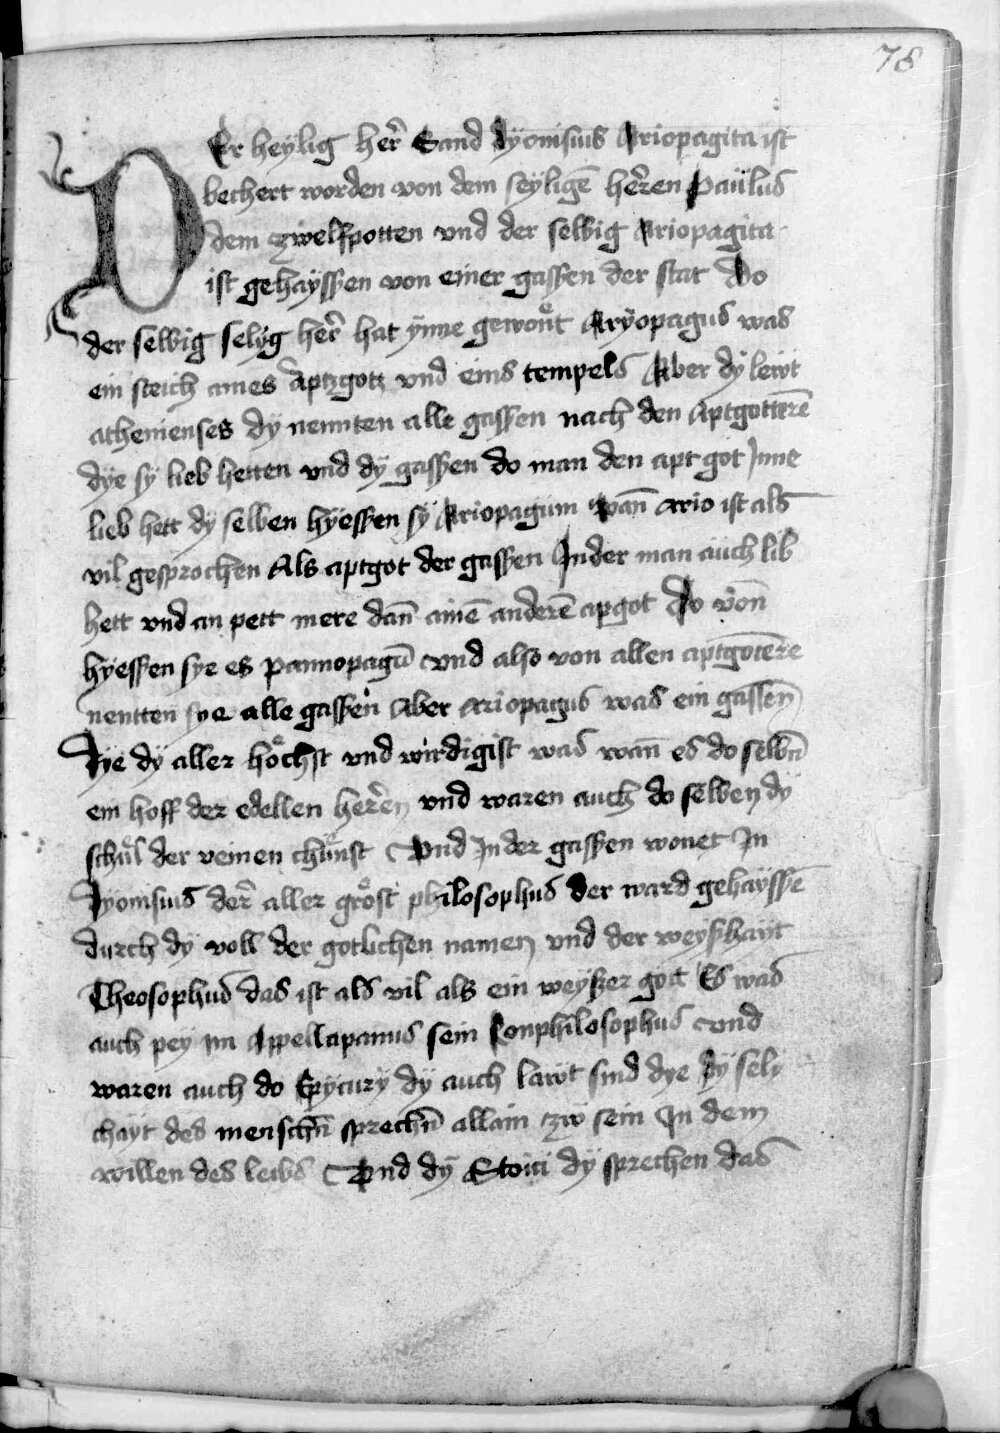 78
DEr heylig her̃ Sand dyonisius Ariopagita ist
bechert worden von dem seylige͂ her̃en Paulus
dem zwelfpotten vnd der selbig Ariopagita
ist gehayssen von einer gassen der stat Do
der selbig selyg her̃ hat ynne gewont Aryopagus was
ein reich aines Aptzgotz vnd eins tempels Aber dy lewt
athenienses dy nennten alle gassen nach den Aptgottere͂
dye sy lieb hetten vnd dy gassen do man den apt got Inne
lieb hett dy selben hyessen sy Ariopagum wan͂ Ario ist als
vil gesprochen Als aptgot der gassen Inder man auch lib
hett vnd an pett mere dan͂ aine͂ andere͂ apgot Do von͂
hyessen sye es pannopagu͂ vnd also von allen aptgotere
nentten sye alle gassen Aber Ariopagus was ein gassen
Dye dy aller höchst vnd wirdigist was wan͂ es do selbn͂
ein hoff der edellen her̃en vnd waren auch do selben dy
schůl der veinen chůnst Vnd Inder gassen wonet In
Dyonisius der̃ aller gröst philosophus der ward gehaysse͂
durch dy voll der gotlichen namen vnd der weyshayt
Theosophus das ist als vil als ein weyszer got Es was
auch pey im Appellapanius sein Conphilosophus vnd
waren auch do Epycury dy auch lawt sind dye dy sely
chayt des menschn͂ sprechn͂ allain zw sein In dem
willen des leibs Vnd dy Stoici dy sprechen das